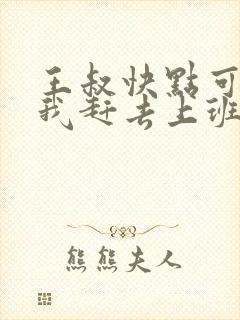 王叔快點可
我赶去上班
熊熊夫人